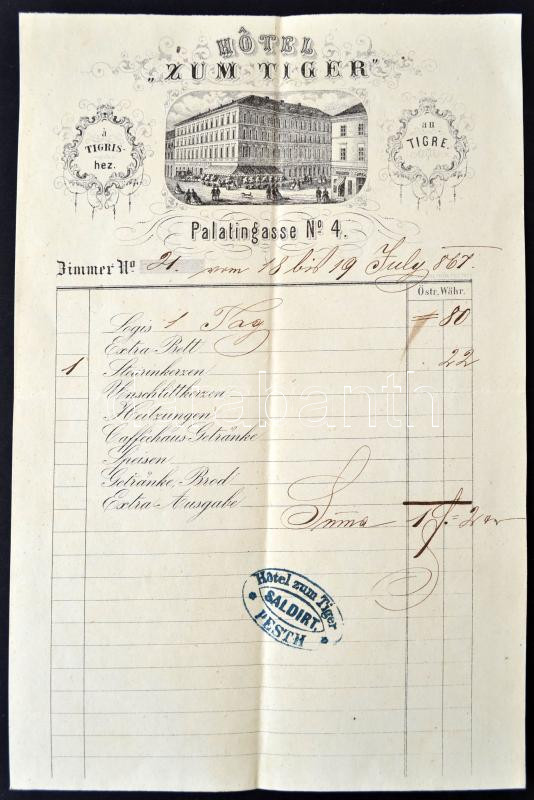 HÔTEL
"ZUM TIGER"
à
TIGRIS-
hez.
au
TIGRE.
Palatingasse No 4.
Zimmer No 21. vom 18 bis 19 July 867
Östr. Währ.
Logis 1 Tag 80
Extra Bett
1 Stearinkerzen . 22
Unschlittkerzen
Heitzungen
Caffeehaus Getränke
Speisen
Getränke, Brod
Extra Ausgabe
Suma 1 f. 2
Hôtel zum Tiger
SALDIRT.
PESTH